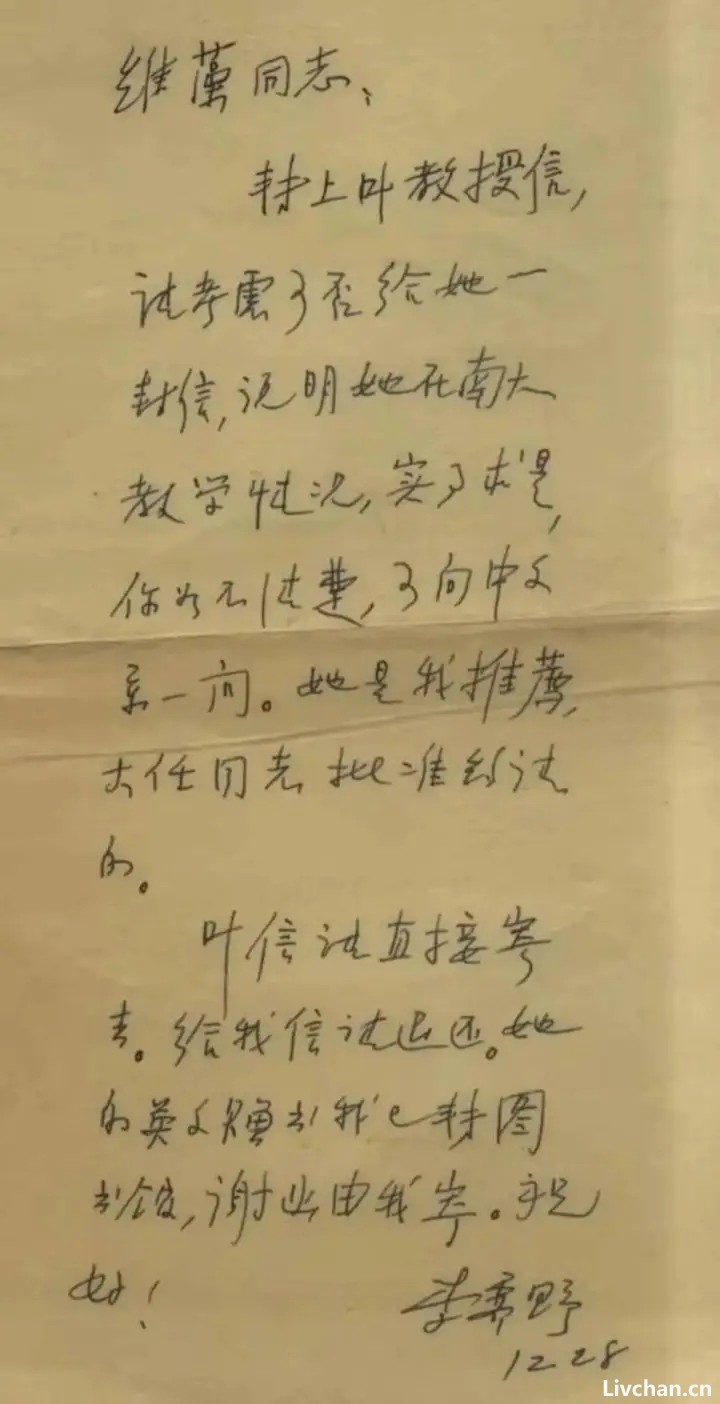 维藻同志：
转上叶教授信，
请考虑可否给她一
封信，说明她在南大
教学情况，实事求是，
你如不清楚，可向中文
系一问。她是我推荐，
大任同志批准约请
的。
叶信请直接寄
去。给我信请退还。她
的英文赠书我已转图
书馆，谢函由我寄。祝
好！
李霁野
12 28
Livchan.cn